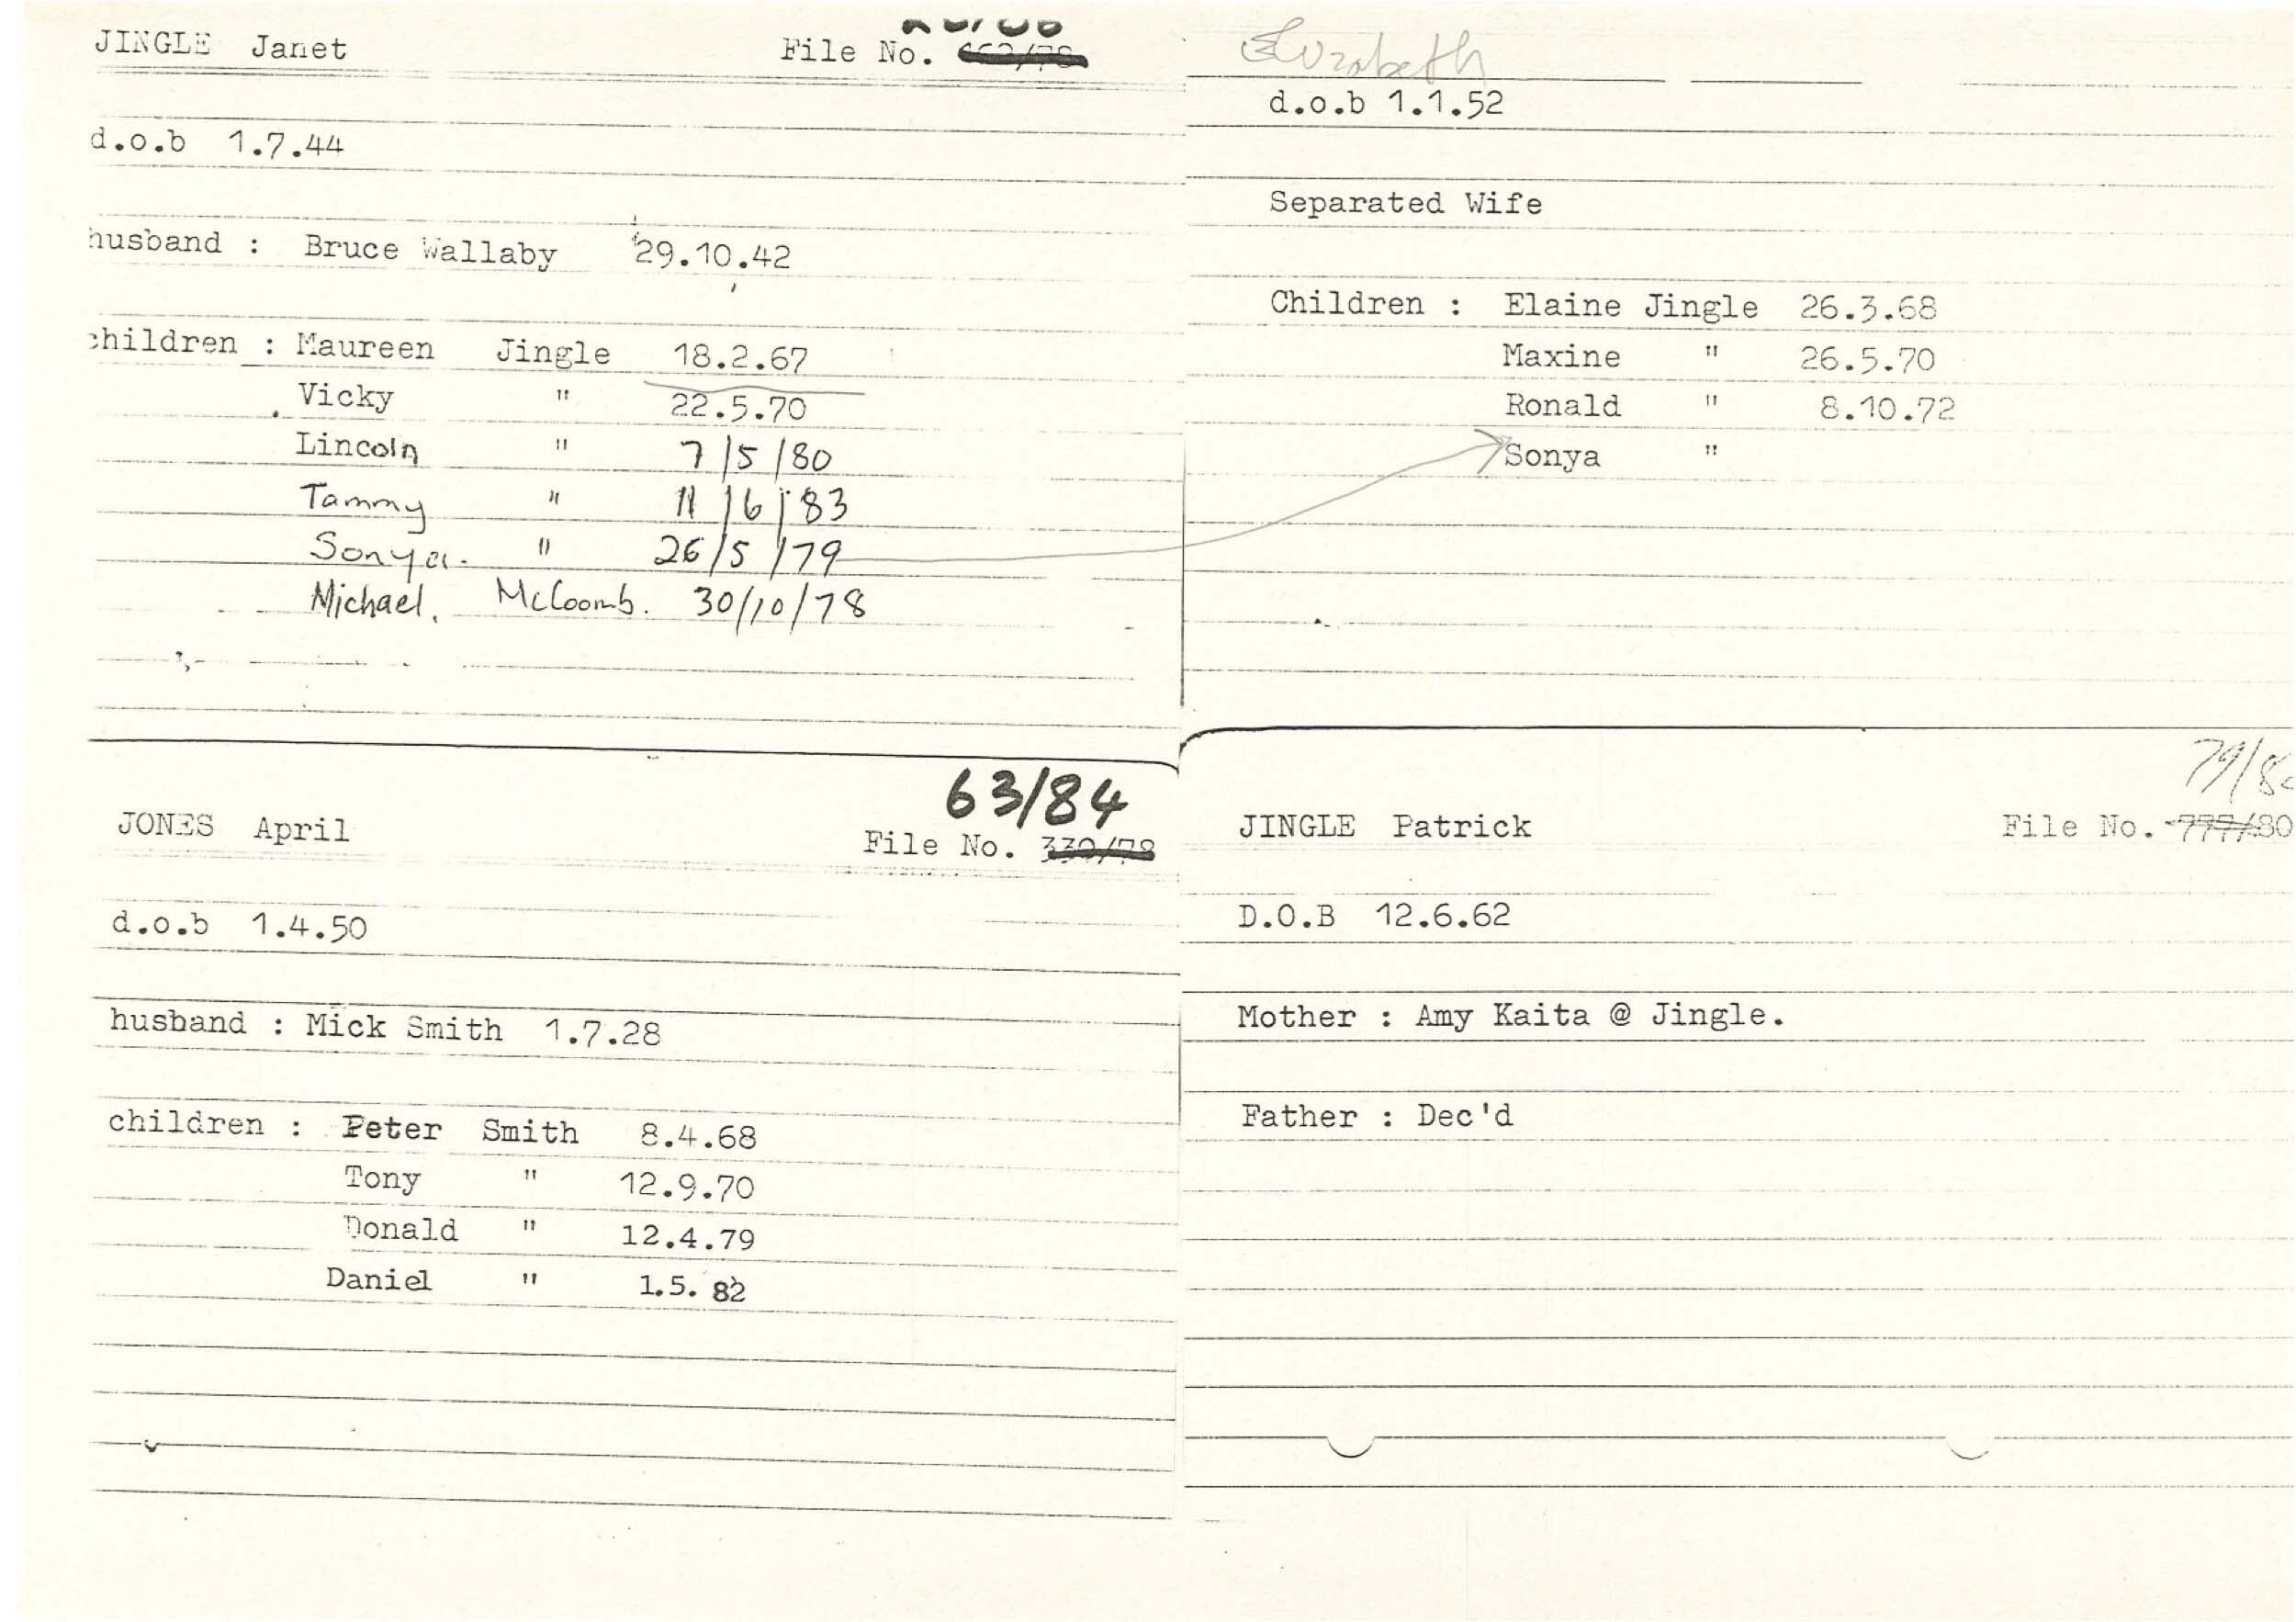 JINGLE Janet File No.
d.o.b 1.7.44
husband : Bruce Wallaby 29.10.42
children : Maureen Jingle 18.2.67
Vicky " 22.5.70
Lincoln " 7/5/80
Tammy " 11/6/83
Sonya. " 26/5/79
Michael. McCoomb. 30/10/78
Elizabeth
d.o.b 1.1.52
Separated Wife
Children : Elaine Jingle 26.3.68
Maxine " 26.5.70
Ronald " 8.10.72
Sonya "
63/84
JONES April File No. 330/78
d.o.b 1.4.50
husband : Mick Smith 1.7.28
children : Peter Smith 8.4.68
Tony " 12.9.70
Donald " 12.4.79
Daniel " 1.5.82
JINGLE Patrick File No. 777/80
D.O.B 12.6.62
Mother : Amy Kaita @ Jingle.
Father : Dec'd